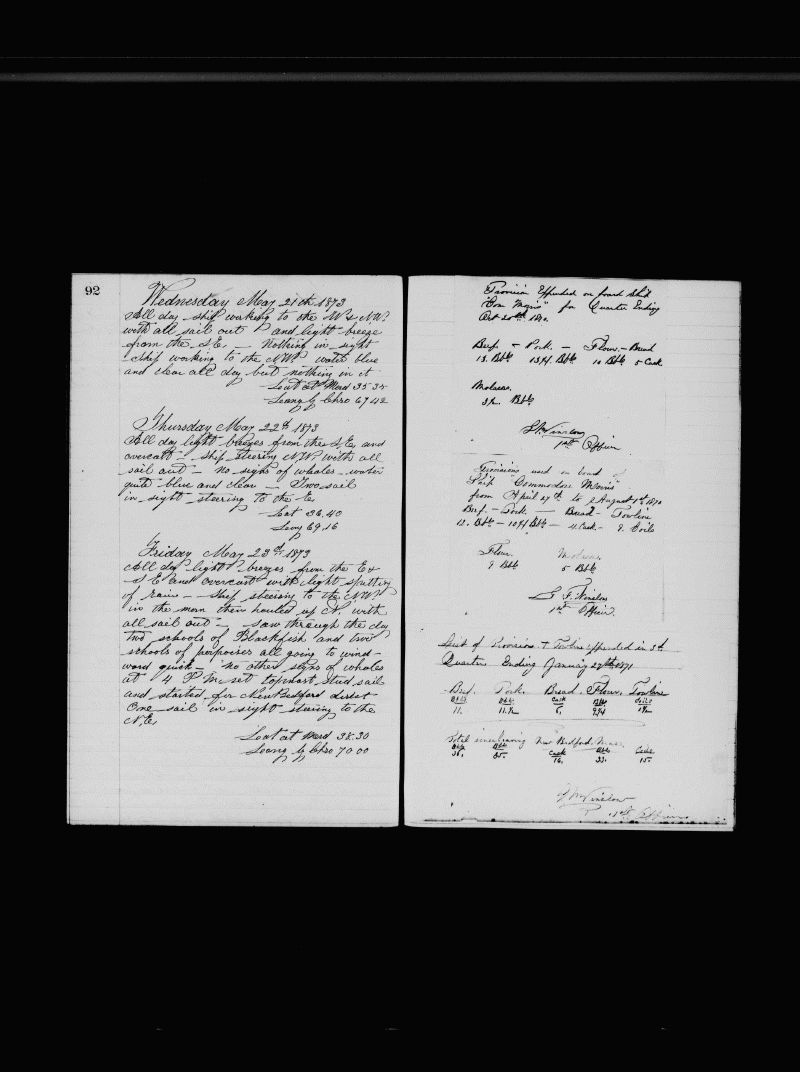 92
Wednesday May 21th 1873
All day ship working to the W & NW
with all sail out and light breeze
from the S.E. — Nothing in sight
Ship working to the NW water blue
and clear all day but nothing in it
Lat at Merd 35 35
Long by Chro 69 42
Thursday May 22d 1873
All day light breezes from the S.E. and
overcast — ship steering N.W. with all
sail out — No signs of whales — water
quite blue and clear — Two sail
in sight steering to the E.
Lat 36.40
Long 69.16
Friday May 23d 1873
All day light breezes from the E &
S E and overcast with light spitting
of rain — Ship steering to the N.W.
in the morn then hauled up N. with
all sail out — saw through the day
two schools of Blackfish and two
schools of porpoises all going to wind-
ward quick — no other signs of whales
at 4 P M set topmast stud sail
and started for New Bedford direct
One sail in sight steering to the
N.E.
Lat at Merd 38.30
Long by Chro 70 00
Provision Expended on board Ship
"Com Morris" for Quarter Ending
Oct 20th 1870.
Beef — Pork — Flour — Bread
13. Bbls 13 3/4 Bbls 10 Bbls 5 Cask
Molasses.
Bbls
Winslow
1st Officer
Provisions used on board of
Ship "Commodore Morris"
from April 27th to August 1st 1870
Beef. — Pork — Bread — Towline
12. Bbls — Bbls — 4 Cask — 2. Coils
Flour. Molasses
9 Bbls 5 Bbls
G. F. Winslow
1st Officer.
List of Provisions & Towline expended in 3d
Quarter Ending January 27th 1871
Beef. Pork. Bread. Flour. Towline
Bbls Bbls Cask Bbls Coils
11. 11. 1/2 6.
Total since leaving New Bedford, Mass.
Bbls Bbls Cask Bbls Coils
36. 35. 16. 33. 15.
Winslow
1st Officer